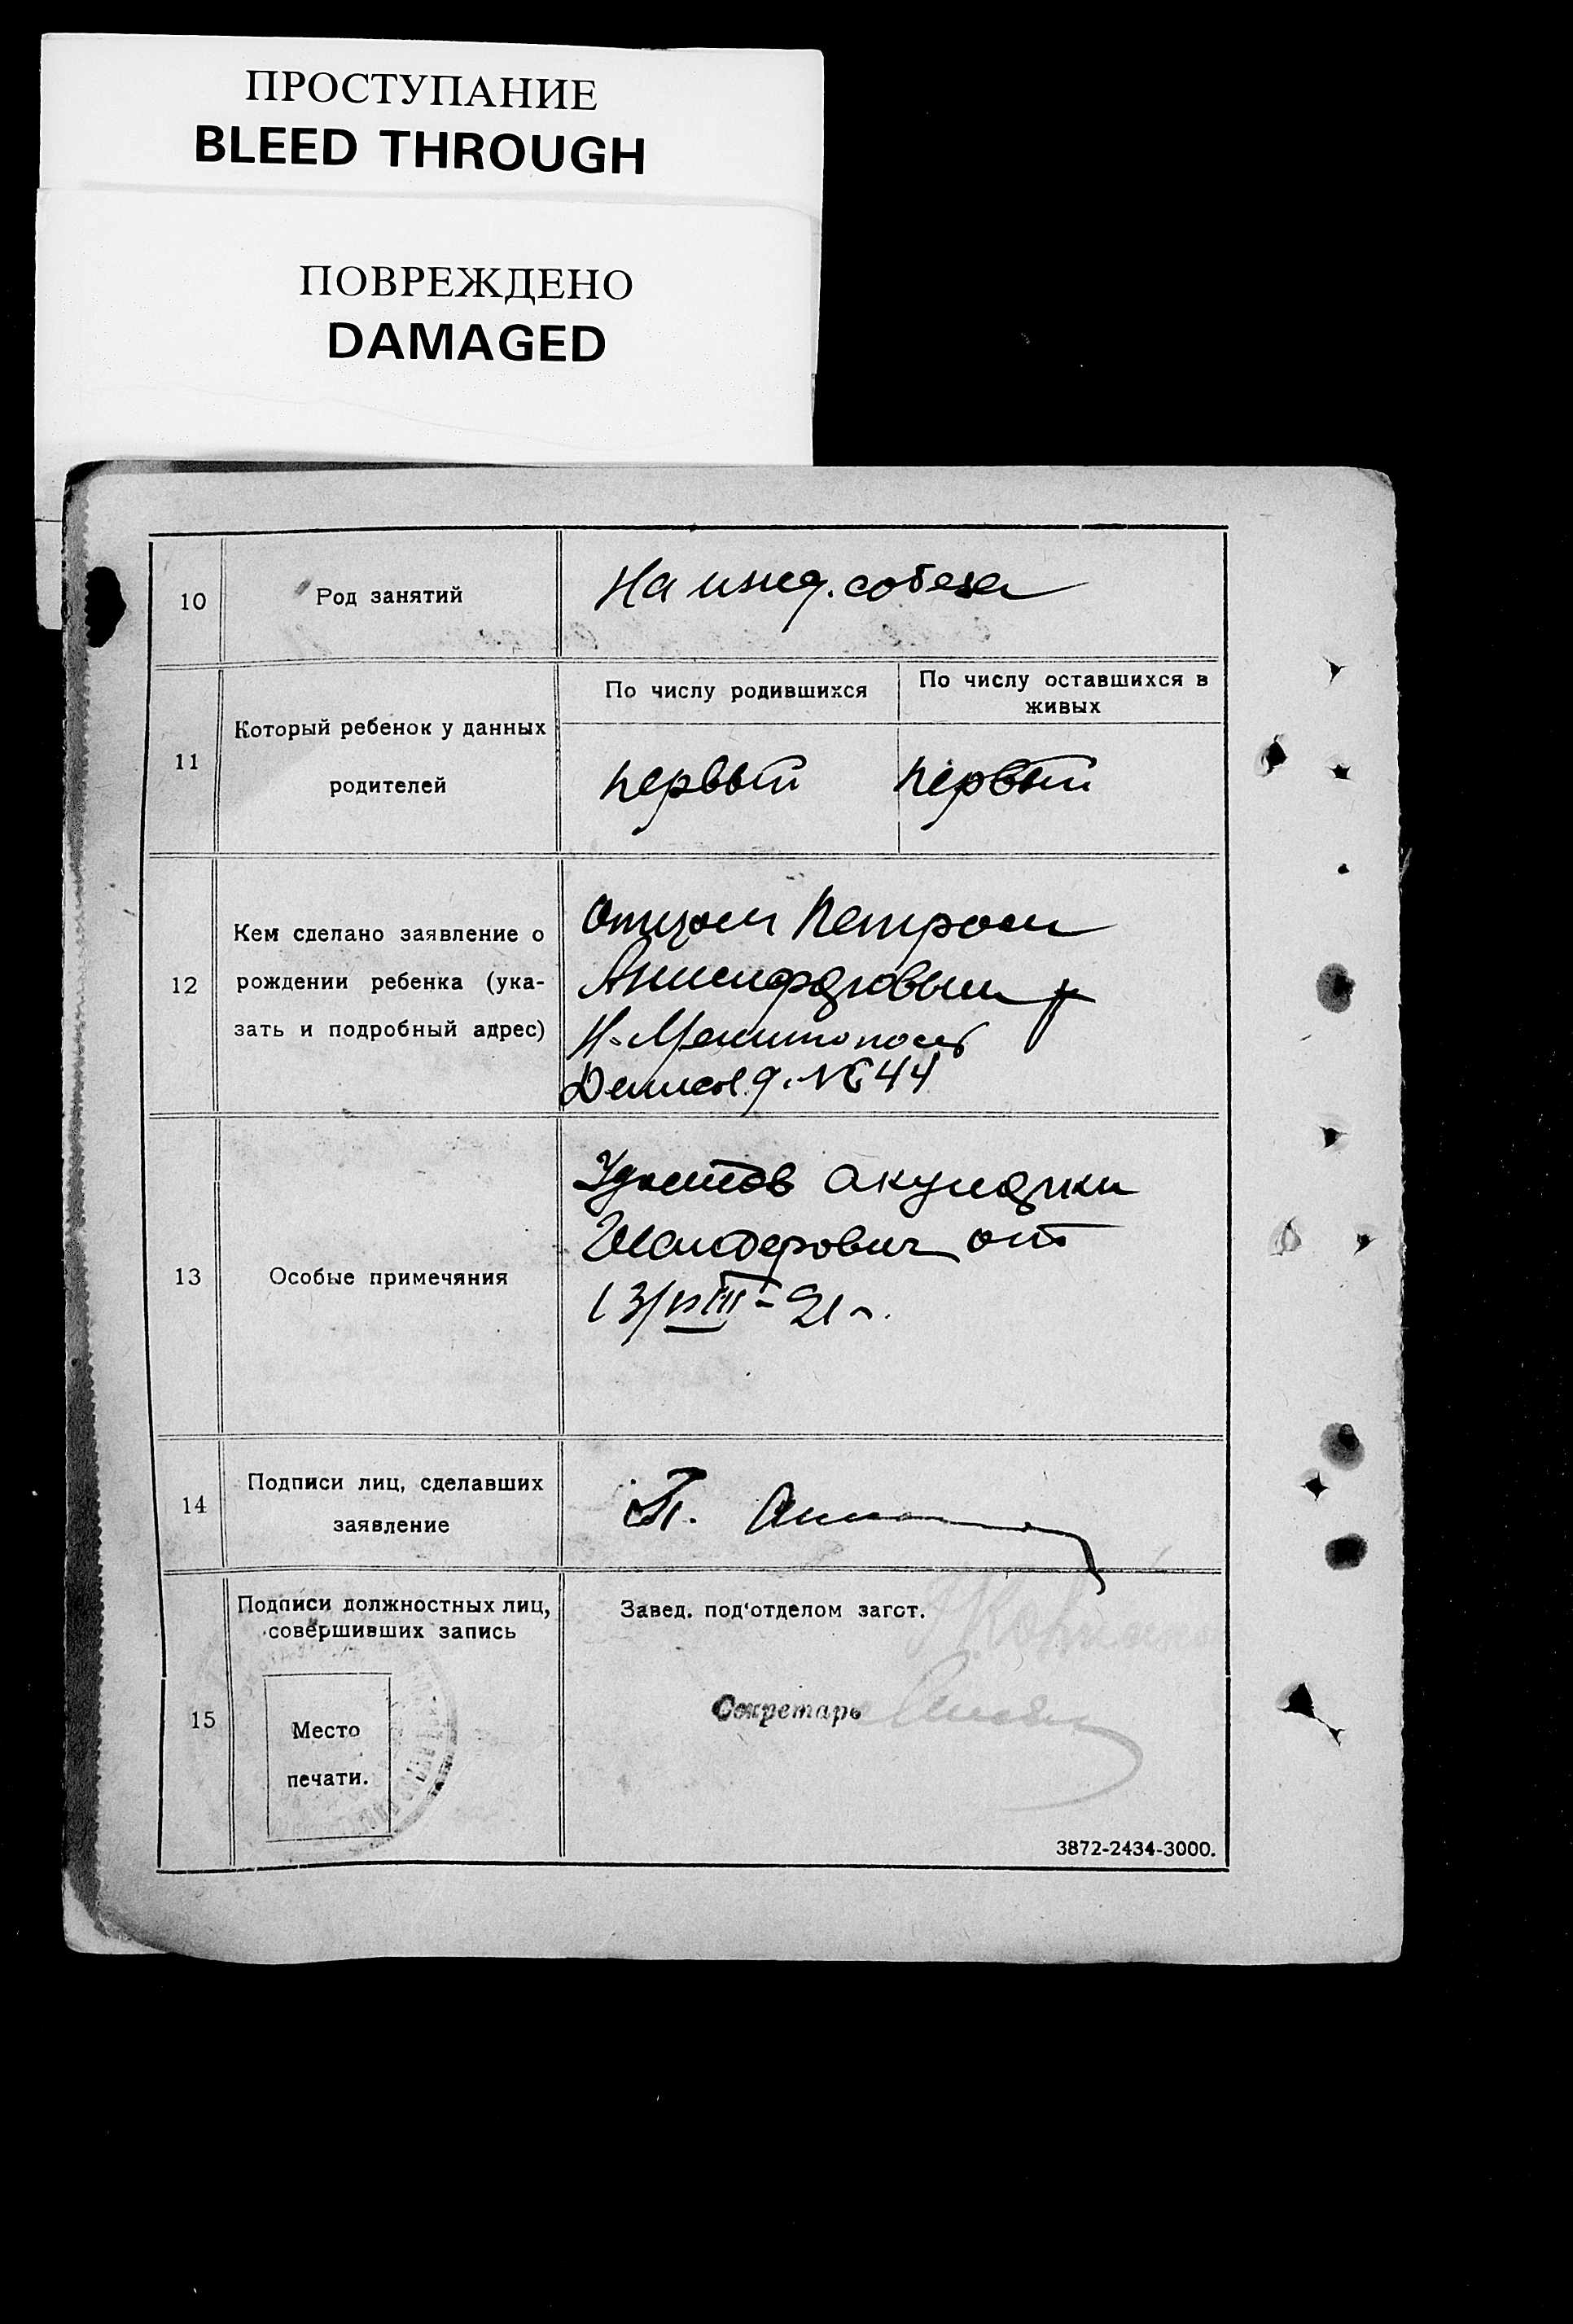 ПРОСТУПАНИЕ
BLEED THROUGH
ПОВРЕЖДЕНО
DAMAGED
10
Род занятий
На ижд. собеза
11
Который ребенок у данных
родителей
По числу родившихся
По числу оставшихся в
живых
первый
первый
12
Кем сделано заявление о
рождении ребенка (ука-
зать и подробный адрес)
Отцом Петром
Н-Мелитополь
д. № 44
13
Особые примечяния
акушерки
от
13/VIII-21 г.
14
Подписи лиц, сделавших
заявление
П.
15
Подписи должностных лиц,
совершивших запись
Место
печати.
Завед. под'отделом загст.
Секретарь
3872-2434-3000.